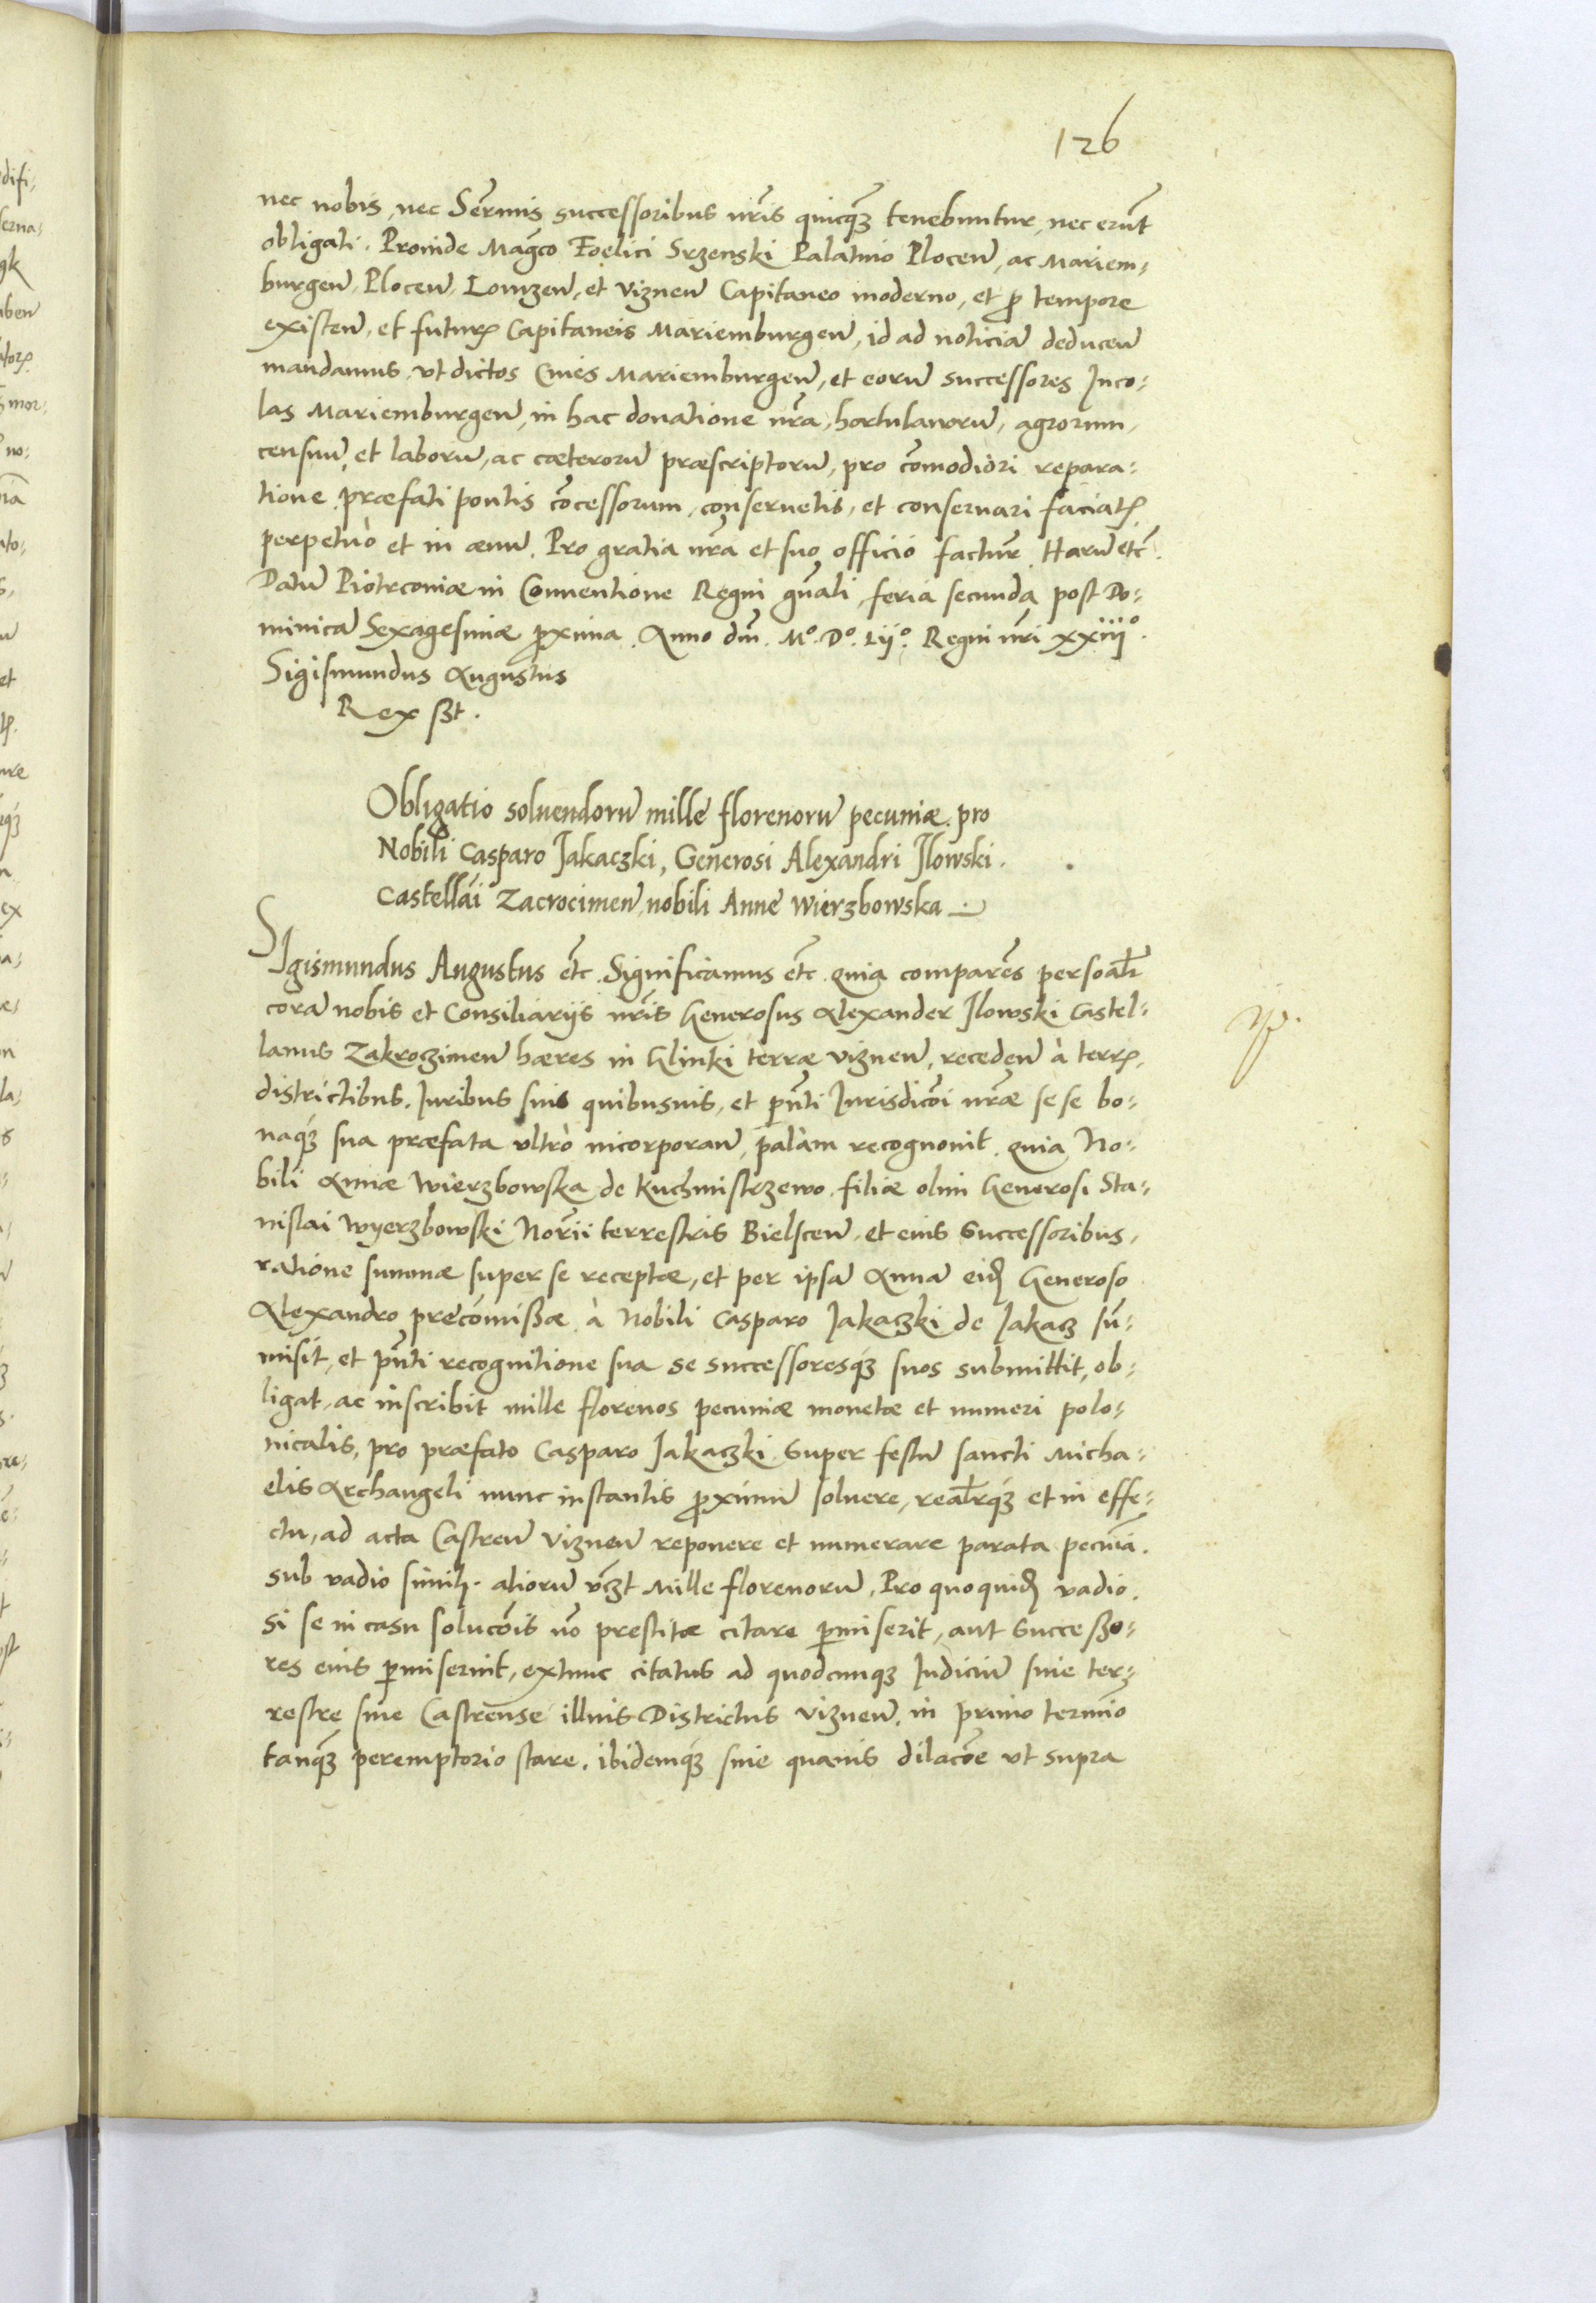 126
nec nobis, nec Sermis successoribus nris quicq̃ tenebuntur, nec erũt
obligati. Proinde Magco Foelici Srzenski Palatino Plocen̄, ac Mariem-
burgen̄, Plocen̄, Lomzen̄, et Viznen̄ Capitaneo moderno, et ꝓ tempore
existen̄, et futurꝭ Capitaneis Mariemburgen̄, id ad noticiā deducen̄
mandamus, vt dictos Ciues Mariemburgen̄, et eorū successores Inco-
las Mariemburgen̄, in hac donatione nrã, hortulanorū, agrorum,
censuū, et laborū, ac cæterorū præscriptorū, pro cõmodiori repara-
tione præfati pontis cõcessorum, conseruetis, et conseruari faciatꝭ
perpetuò et in æuū. Pro gratia nrã et suo officio facturꝭ. Harū etc̃.
Datū Piotrconiæ in Conuentione Regni gñali, feria secunda post Do-
minicā Sexagesimæ ꝓxima. Anno dñi. Mº. Dº. Lijº. Regni nri xxiijº.
Sigismundus Augustus
Rex sst.
Obligatio soluendorū mille florenorū pecuniæ, pro
Nobili Casparo Jakaczki, Generosi Alexandri Jlowski.
Castellãi Zacrocimen̄, nobili Anne Wierzbowska
SIgismundus Augustus etc̃. Significamus etc̃. quia comparẽs persoalr̃
corā nobis et Consiliarijs nris Generosus Alexander Jlowski Castel-
lanus Zakroczimen̄ hæres in Glinki terræ Viznen̄, receden̄ à terrꝭ,
districtibus, Iuribus suis quibusuis, et pñti Iurisdicõi nræ se se bo-
naq́ꝫ sua præfata vltrò incorporan̄, palàm recognouit, quia No-
bili Annæ Wierzbowska de Kuchmistrzewo, filiæ olim Generosi Sta-
nislai Wyerzbowski Norii terrestris Bielscen̄, et eius successoribus,
ratione summæ super se receptæ, et per ipsā Annā eidꝫ Generoso
Alexandro precõmissæ à Nobili Casparo Jakaczki de Jakacz sũ-
misit, et pñti recognitione sua se successoresq́ꝫ suos submittit, ob-
ligat, ac inscribit mille florenos pecuniæ monetæ et numeri polo-
nicalis, pro præfato Casparo Jakaczki super festū sancti Micha-
elis Archangeli nunc instantis ꝓximū soluere, realr̃q́ꝫ et in effe-
ctu, ad acta Castren̄ Viznen̄ reponere et numerare parata pecuniã.
sub vadio similꝭ. aliorū vcꝫt Mille florenorū. Pro quo quidꝫ vadio.
si se in casu solucõis nõ prestitæ citare ꝑmiserit, aut successo-
res eius ꝑmiserint, extunc citatus ad quodcunqꝫ Iudiciū siue ter-
restre siue Castrense illius Districtus Viznen̄, in primo termino
tanq̃ peremptorio stare, ibidemq́ꝫ sine quauis dilacõe vt supra